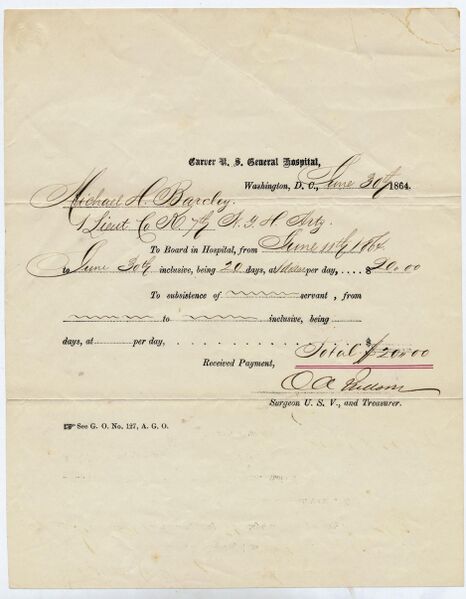 Carver U. S. General Hospital,
Washington, D. C., June 30th 1864.
Michael H. Barcley.
1 Lieut Co K. 7th N. Y. H. Arty.
To Board in Hospital, from June 11th 1864.
to June 30th inclusive, being 20 days, at 1 dollar per day, .... $ 20.00
To subsistence of servant, from
to inclusive, being
days, at per day, . . . . . . . . $
Total $20.00
Received Payment,
O A
Surgeon U. S. V., and Treasurer.
☞ See G. O. No. 127, A. G. O.